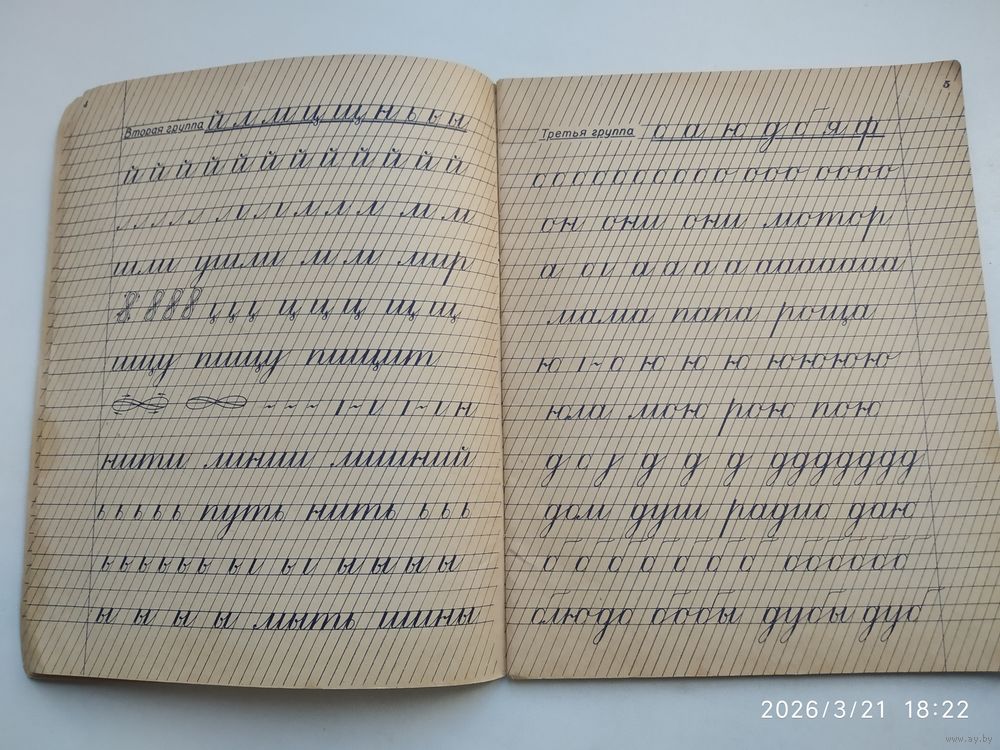 4
Вторая группа й л м ц щ н ь ъ ы
й й й й й й й й й й й й й
л л м м м м м
шли ушли м м мир
ц ц ц ц ц ц щ щ
ищу пищу пищит
н
нити линии линий
ь ь ь ь ь путь нить ь ь ь
ъ ъ ъ ъ ъ ъ ы ы ы ы ы ы
ы ы ы ы мыть шины
5
Третья группа о а ю д б я ф
о о о о о о о о о о о о о о о о
он они они мотор
а а а а а а а а а а а а а
мама папа роща
ю о ю ю ю ю ю ю ю ю
юла мою рою пою
д о д д д д д д д д д д
дом душ радио даю
о б б б б б б б б б б б б б
блюдо бобы дубы дуб
2026/3/21 18:22
www.ay.by